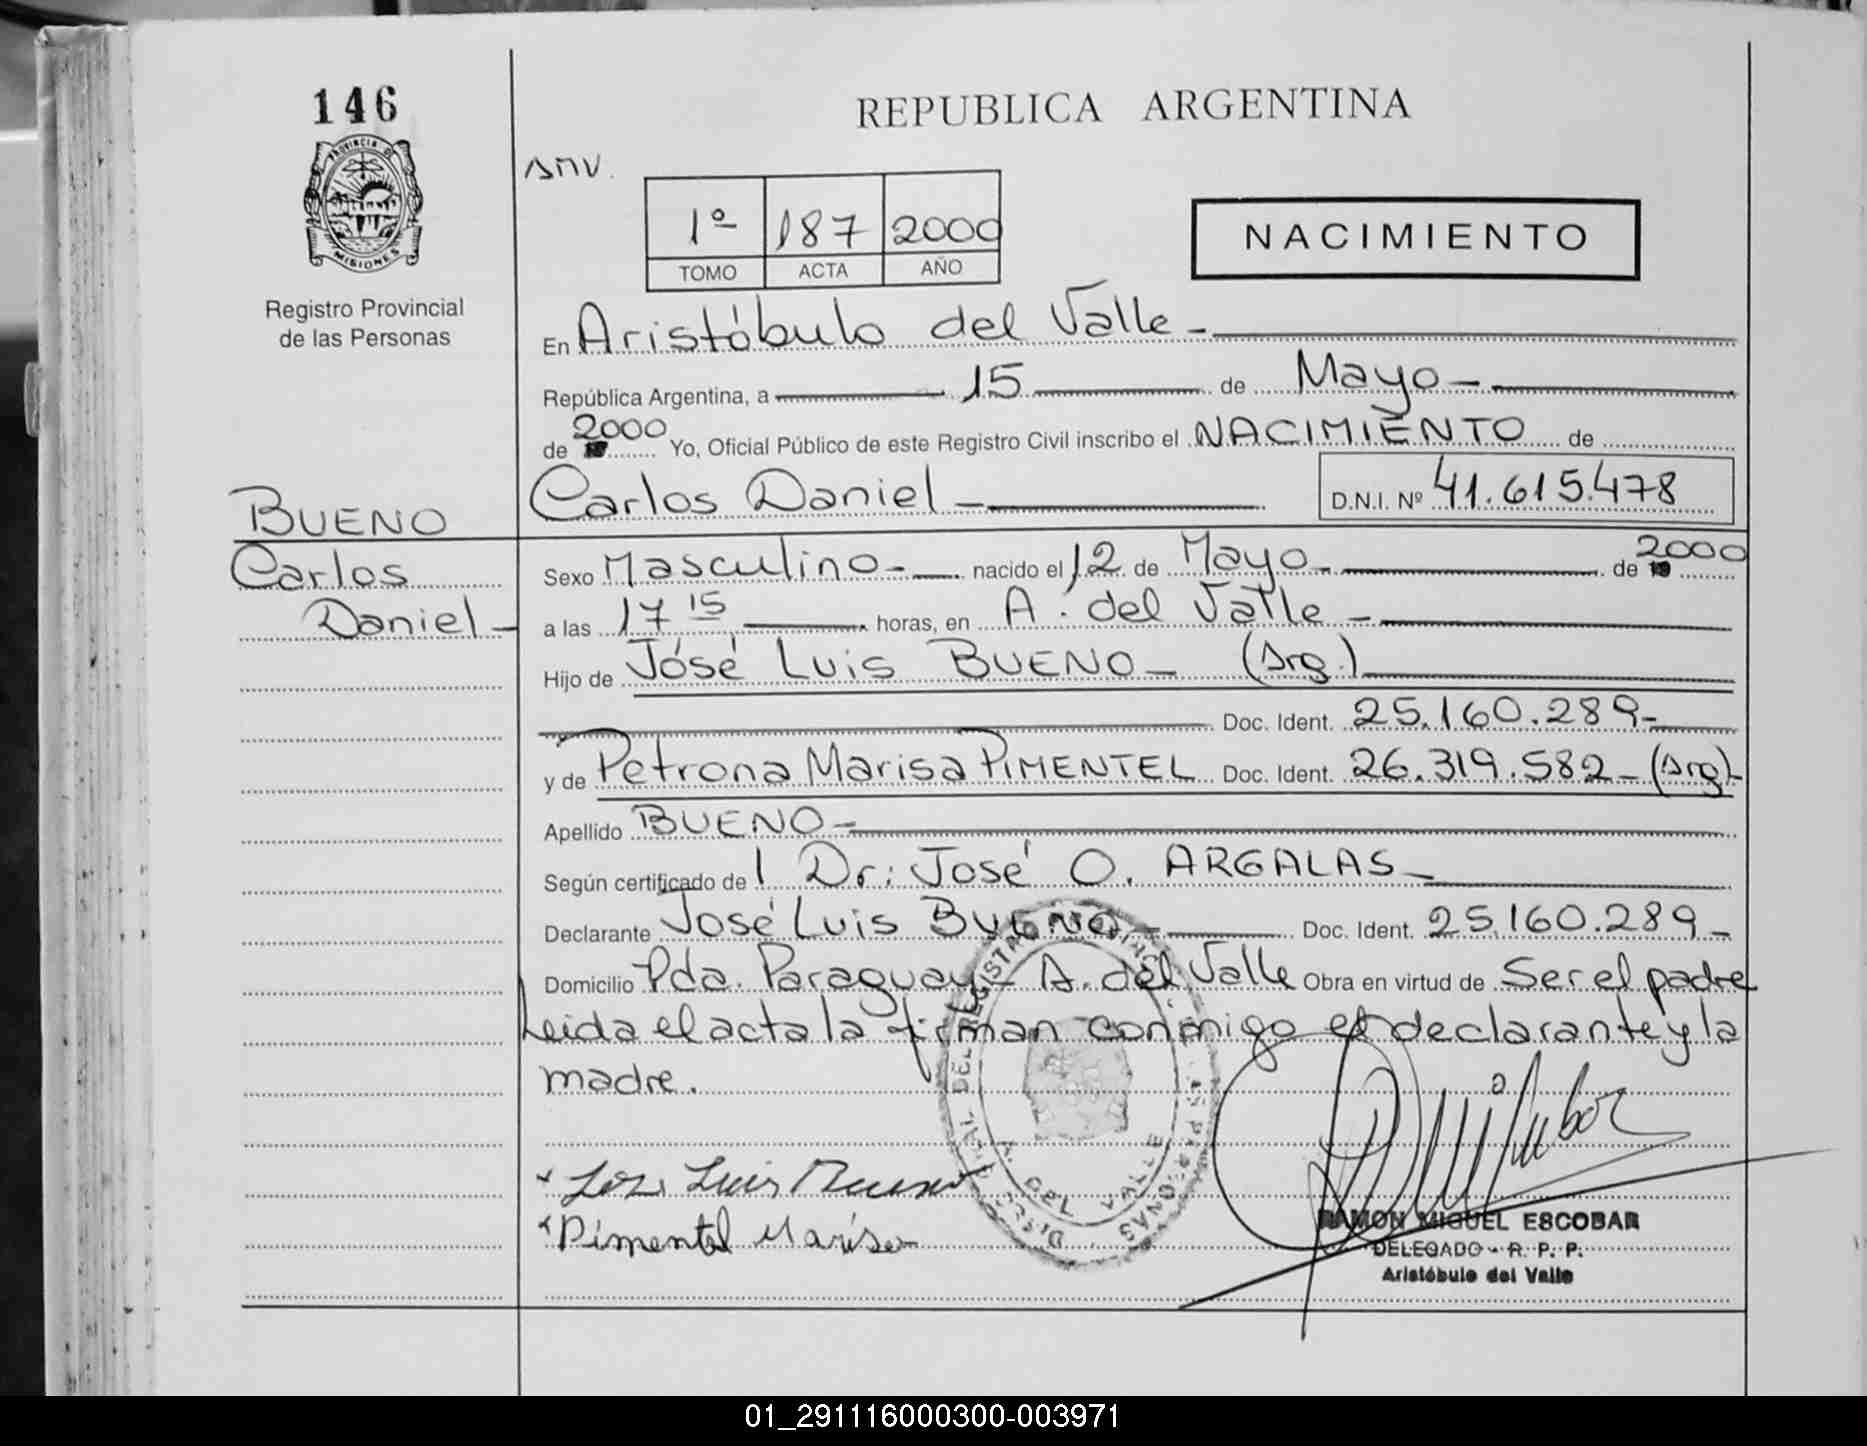 146
PROVINCIA DE
MISIONES
Registro Provincial
de las Personas
REPUBLICA ARGENTINA
1º 187 2000
TOMO ACTA AÑO
NACIMIENTO
En Aristóbulo del Valle -
República Argentina, a 15 de Mayo -
de 2000 Yo, Oficial Público de este Registro Civil inscribo el NACIMIENTO de
Carlos Daniel - D.N.I. Nº 41.615.478
BUENO
Carlos
Daniel -
Sexo Masculino - nacido el 12 de Mayo - de 2000
a las 17 15 horas, en A. del Valle -
Hijo de José Luis BUENO - (Arg.)
Doc. Ident. 25.160.289 -
y de Petrona Marisa PIMENTEL Doc. Ident. 26.319.582 - (Arg) -
Apellido BUENO -
Según certificado de l Dr: José O. ARGALAS -
Declarante José Luis BUENO - Doc. Ident. 25.160.289 -
Domicilio Pda. Paraguay - A. del Valle Obra en virtud de Ser el padre
Leida el acta la firman conmigo el declarante y la
madre.
Jose Luis Bueno
Pimentel Marisa
A. DEL VALLE
RAMON MIGUEL ESCOBAR
DELEGADO - R. P. P.
Aristóbulo del Valle
01_291116000300-003971